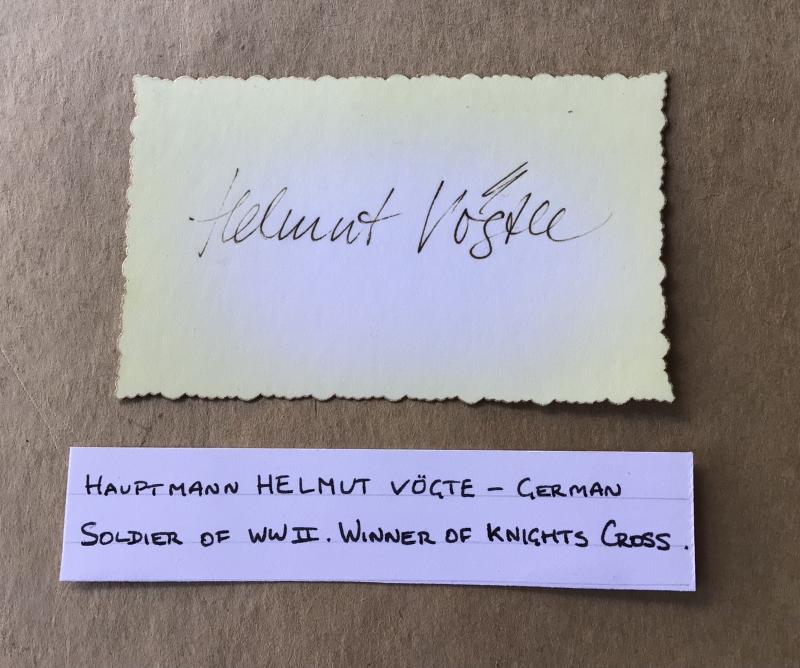 Helmut Vögtle
HAUPTMANN HELMUT VÖGTE – GERMAN
SOLDIER OF WWII. WINNER OF KNIGHTS CROSS.